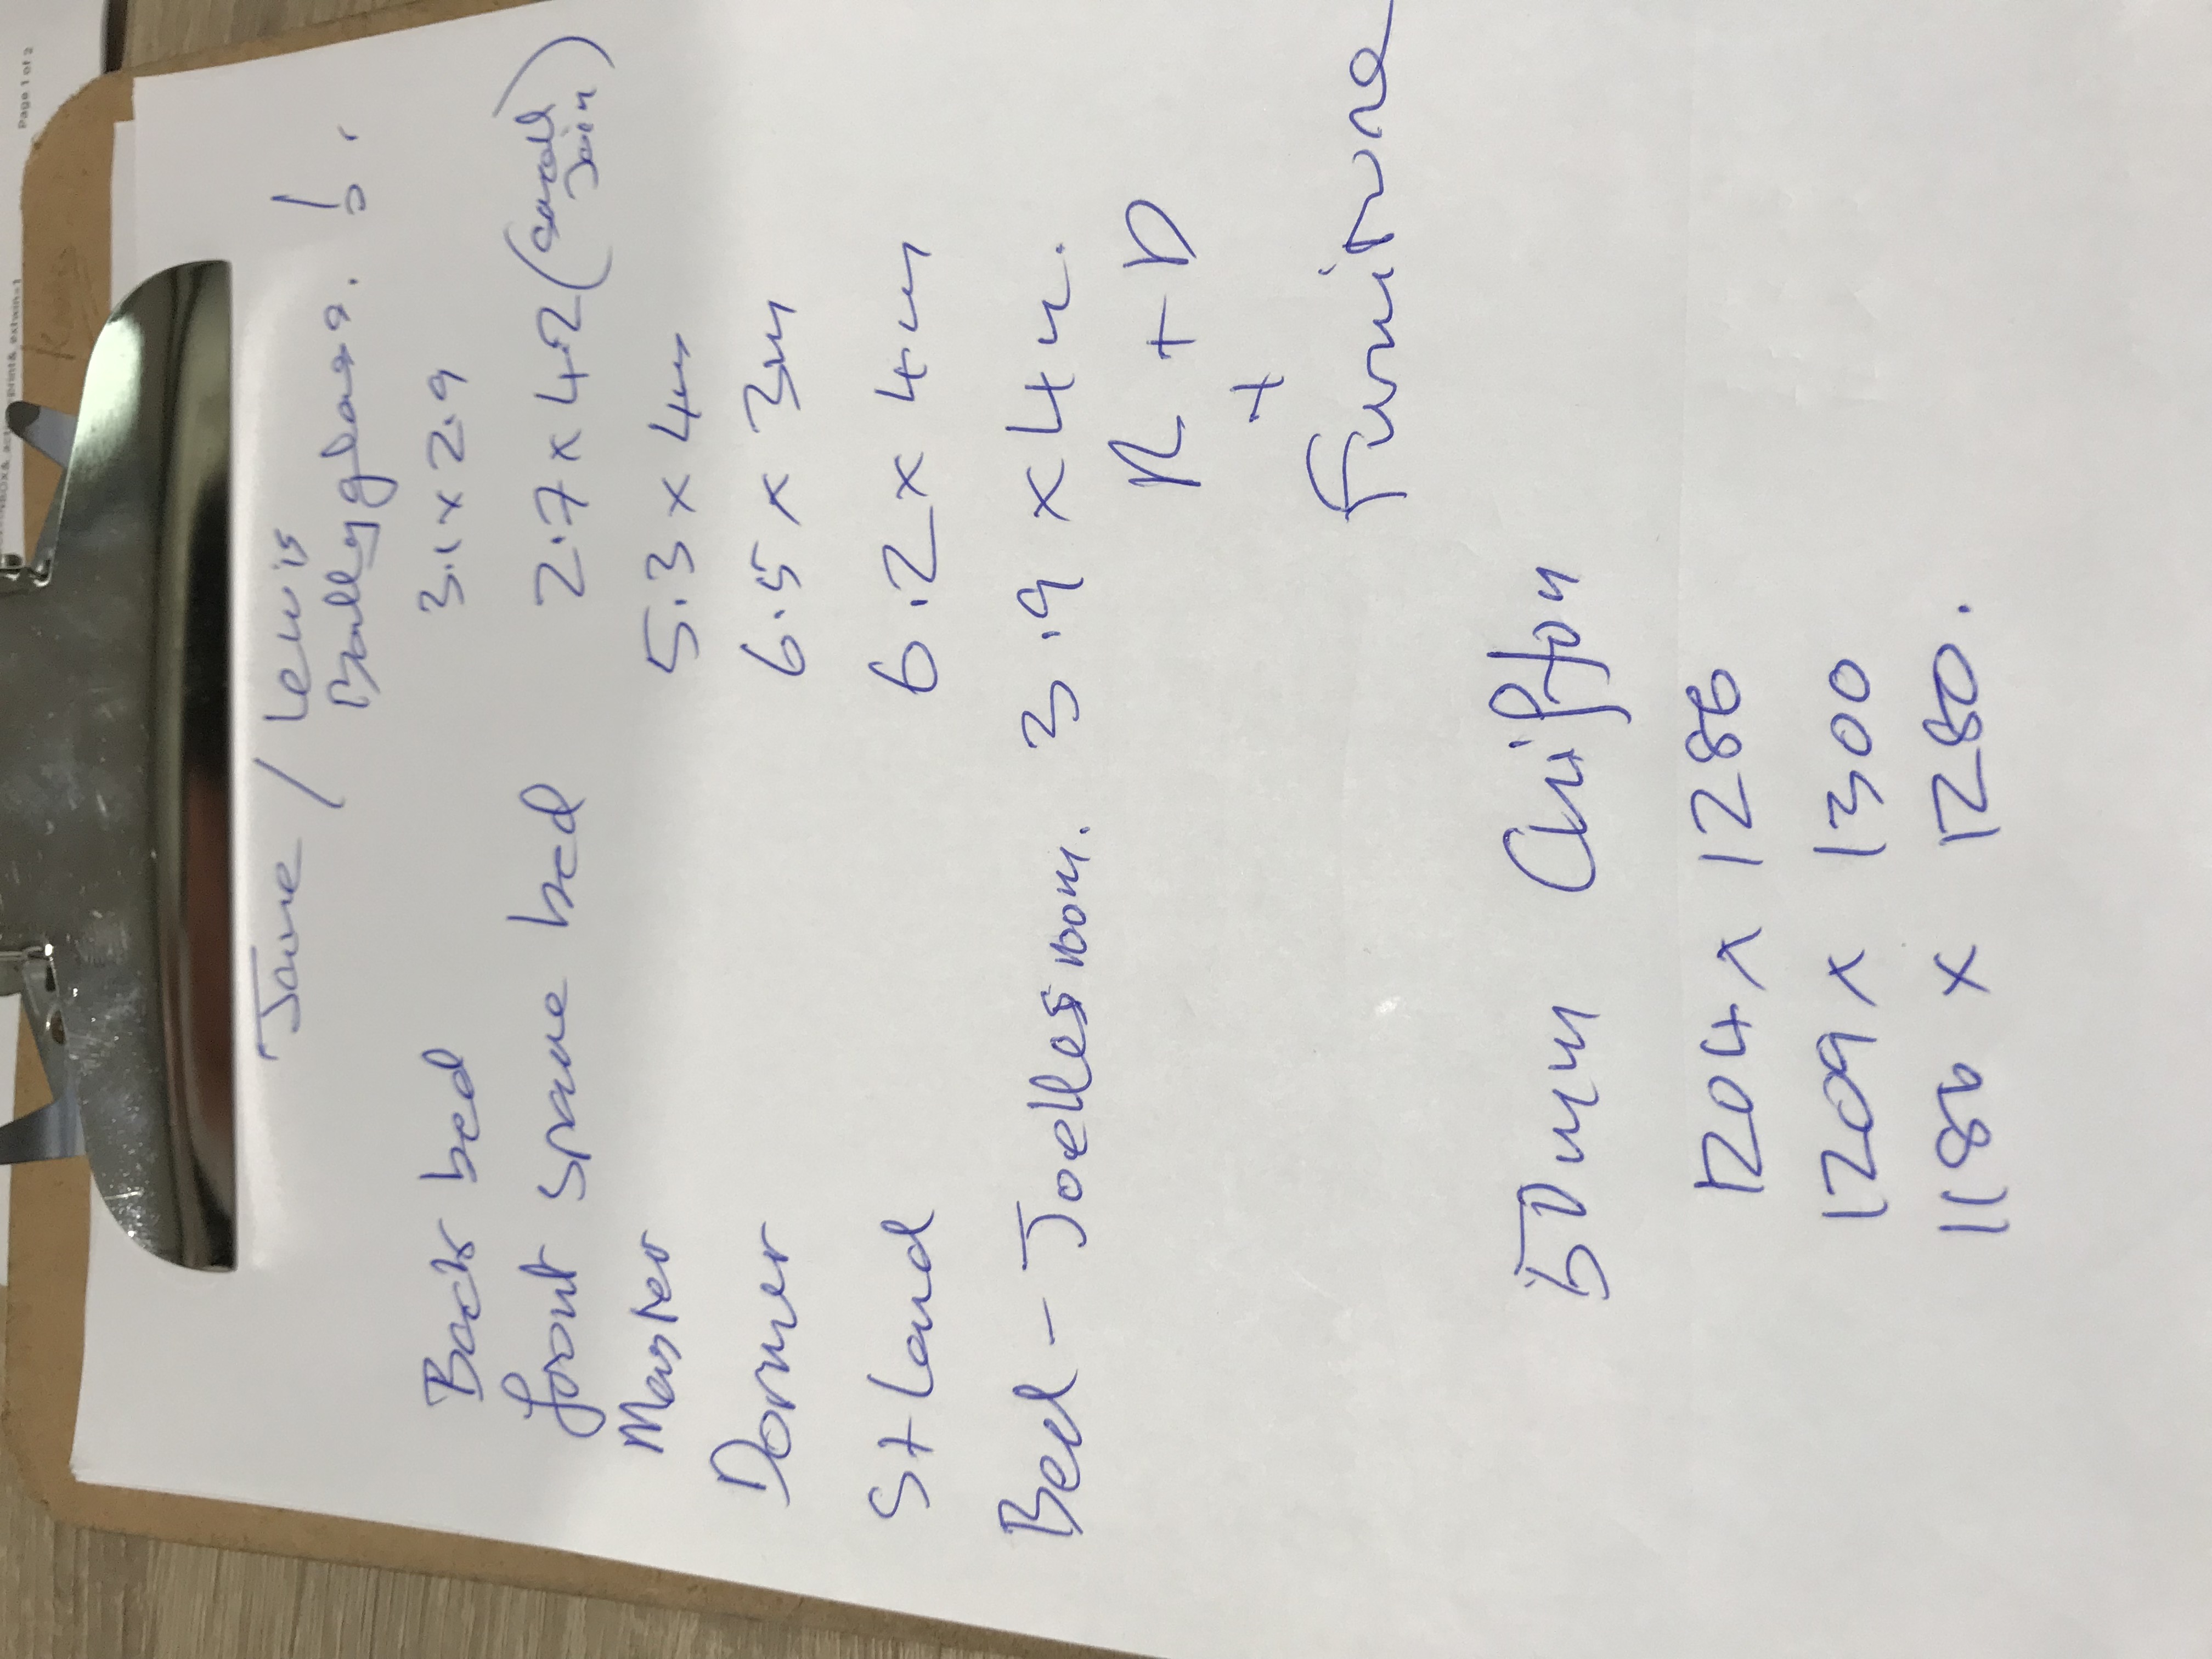 Jane / Lewis
Ballyglass.
Back bed 3.1 x 2.9
front spare bed 2.7 x 4.2 (small Join)
Master 5.3 x 4m
Dormer 6.5 x 3m
St Land 6.2 x 4m
Bed - Joelles room. 3.9 x 4m.
R + D
+
Furniture
50mm Chiffon
1204 x 1286
1209 x 1300
1186 x 1280.
Page 1 of 2